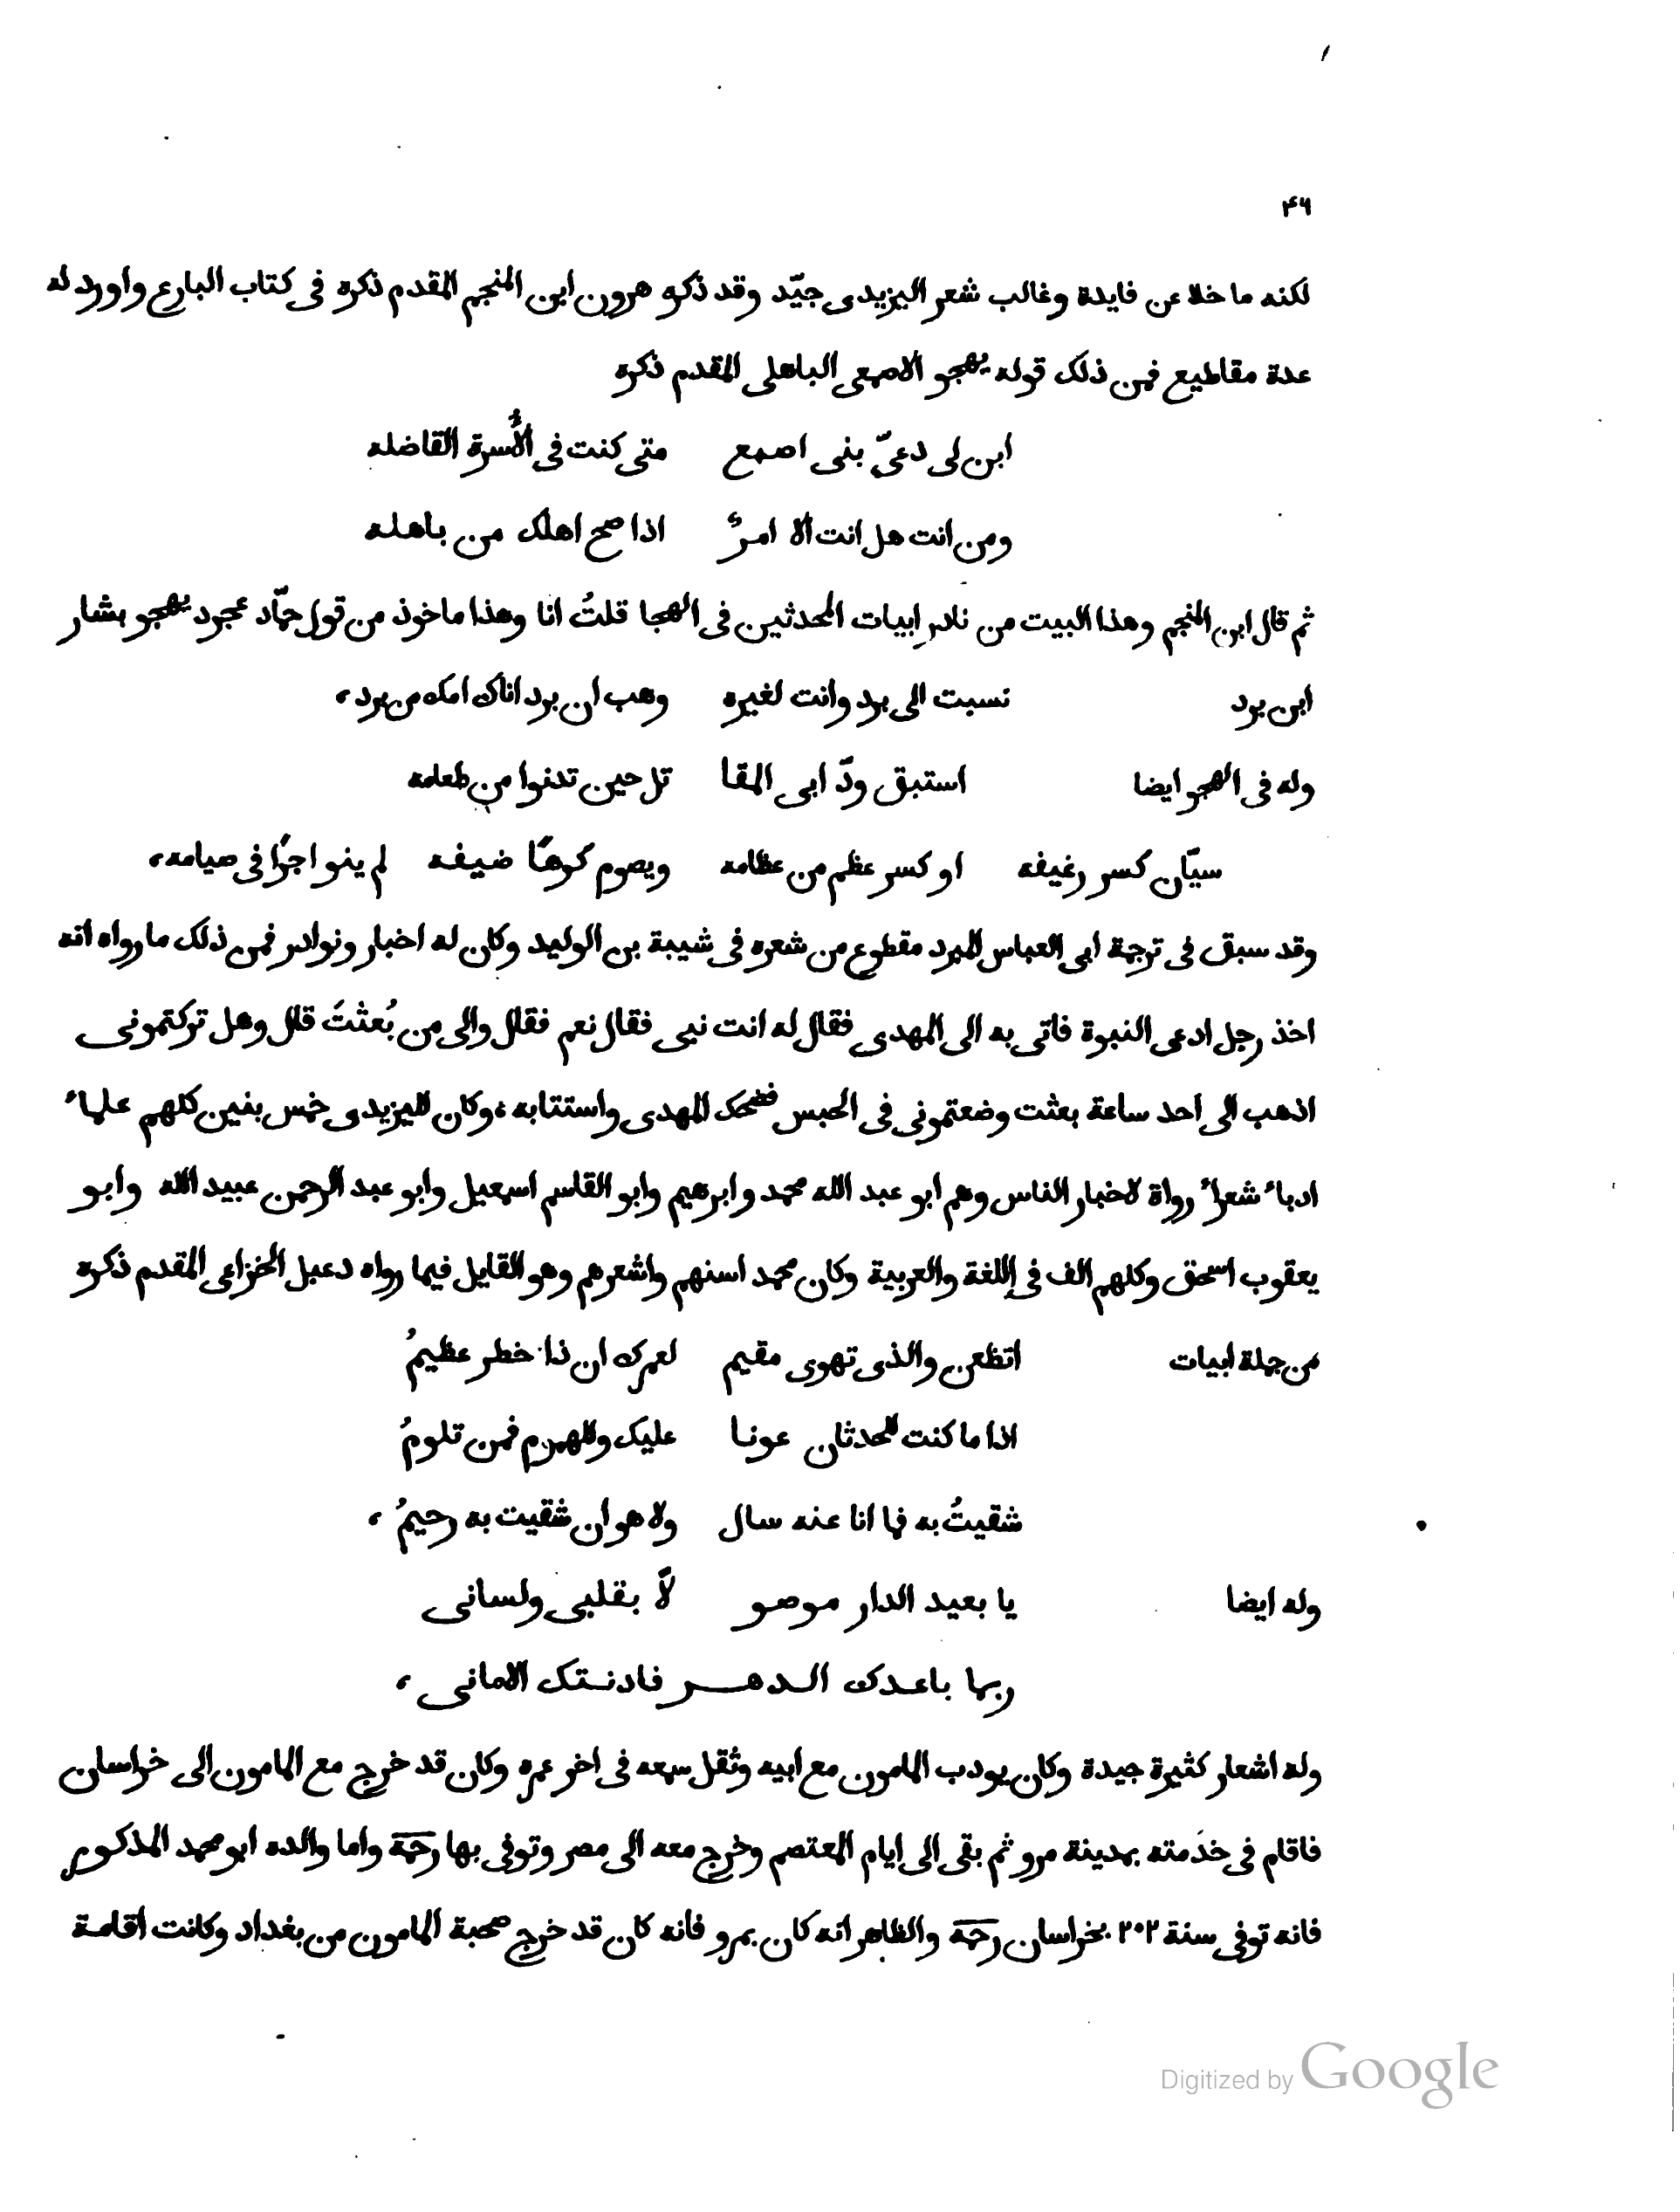 ۴۶
لكنه ما خلا عن فايدة وغالب شعر اليزيدى جيّد وقد ذكره هرون ابن المنجم المقدم ذكره فى كتاب البارع واورد له
عدة مقاطيع فمن ذلك قوله يهجو الاصمعى الباهلى المقدم ذكره
ابن لى دعىّ بنى اصمع متى كنت فى الأُسرة الفاضله
ومن انت هل انت الا امرءٌ اذا صح اهلك من باهله
ثم قال ابن المنجم وهذا البيت من نادر ابيات المحدثين فى الهجا قلتُ انا وهذا ماخوذ من قول حمّاد عجرد يهجو بشار
ابن برد نسبت الى برد وانت لغيره وهب ان برد اناك امك من برد،
وله فى الهجو ايضا استبق ودّ ابى المقا تل حين تدنوا من طعامه
سيّان كسر رغيفه او كسر عظم من عظامه ويصوم كرهًا ضيفه لم ينو اجرًا فى صيامه،
وقد سبق فى ترجمة ابى العباس المبرد مقطوع من شعره فى شيبة بن الوليد وكان له اخبار ونوادر فمن ذلك ما رواه انه
اخذ رجل ادعى النبوة فاتى به الى المهدى فقال له انت نبى فقال نعم فقال والى من بُعثتَ قال وهل تركتمونى
اذهب الى احد ساعة بعثت وضعتمونى فى الحبس فضحك المهدى واستتابه، وكان لليزيدى خمس بنين كلهم علماء
ادباء شعراء رواة لاخبار الناس وهم ابو عبد الله محمد وابرهيم وابو القاسم اسمعيل وابو عبد الرحمن عبيد الله وابو
يعقوب اسحق وكلهم الف فى اللغة والعربية وكان محمد اسنهم واشعرهم وهو القايل فيما رواه دعبل الخزاعى المقدم ذكره
من جملة ابيات اتظعن والذى تهوى مقيم لعمرك ان ذا خطر عظيمُ
اذا ما كنت للحدثان عونا عليك وللهموم فمن تلومُ
شقيتُ به فما انا عنه سال ولا هو ان شقيت به رحيمُ،
وله ايضا يا بعيد الدار موصو لًا بقلبى ولسانى
ربما باعدك الدهر فادنتك الامانى،
وله اشعار كثيرة جيدة وكان يودب المامون مع ابيه وثقل سمعه فى اخر عمره وكان قد خرج مع المامون الى خراسان
فاقام فى خدمته بمدينة مرو ثم بقى الى ايام المعتصم وخرج معه الى مصر وتوفى بها رحمَه واما والده ابو محمد المذكور
فانه توفى سنة ٢٠٢ بخراسان رحمَه والظاهر انه كان بمرو فانه كان قد خرج صحبة المامون من بغداد وكانت اقامة
Digitized by Google